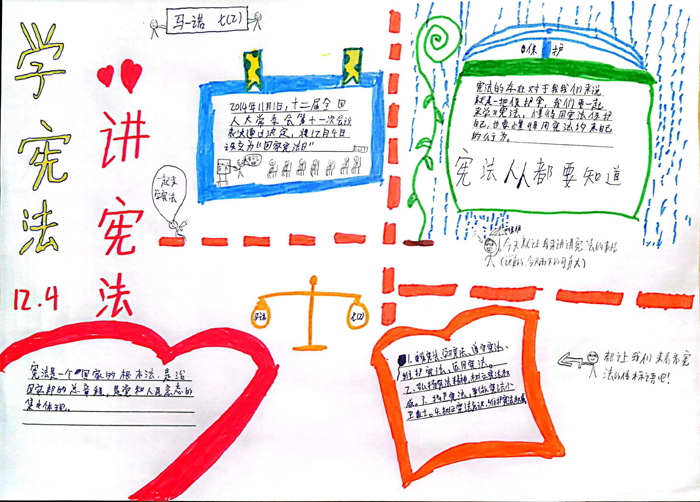 学宪法
讲宪法
12.4
马一诺 七(2)
2014年11月1日,十二届全国
人大常委会第十一次会议
表决通过决定,将12月4日
设立为"国家宪法日"
一起来
学宪法
保护
宪法的存在对于我们来说
就是一把保护伞,我们要一起
来学习宪法,懂得用宪法保护
自己,也要懂得用宪法约束自己
的行为。
宪法人人都要知道
今天就让我来讲讲宪法的事情
宪法是一个国家的根本法,是治
国安邦的总章程,是党和人民意志的
集中体现。
马一诺
七(2)
1.尊崇宪法、学习宪法、遵守宪法、
维护宪法、运用宪法。
2.弘扬宪法精神,树立宪法权
威。3.
卫士。4.树立宪法意识,维护宪法权威
都让我们来看看宪
法的标语吧!